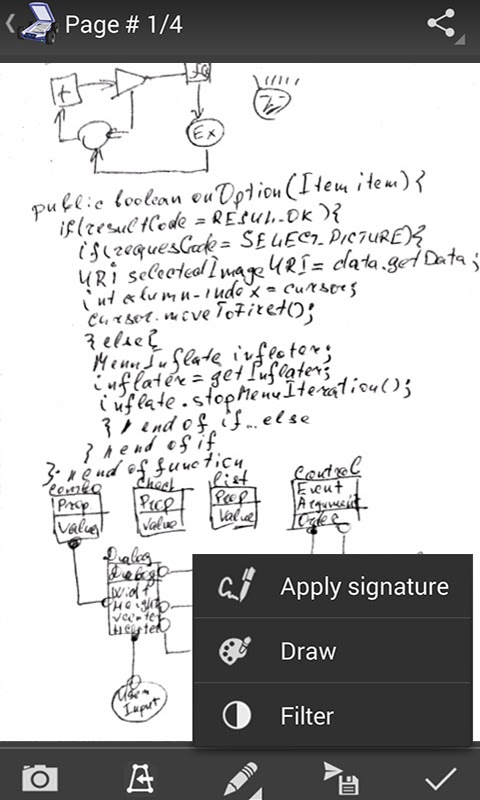 Page # 1/4
+
Ex
public boolean onOption(Item item){
if(resultCode = RESUL_OK){
if(requesCode = SELECT_PICTURE){
URi selectedImageURI = data.getData;
int column-index = cursor;
cursor.moveToFirst();
}else{
MenuInflate inflator;
inflater = getInflater;
inflate.stopMenuIteration();
} // end of if...else
} // end of if
}. // end of function
Combo
Prop
Value
Check
Prop
Value
List
Prop
Value
Control
Event
Argument
Order
Dialog
Dialog
Widt
Height
Vcenter
Hcenter
User
Input
Apply signature
Draw
Filter